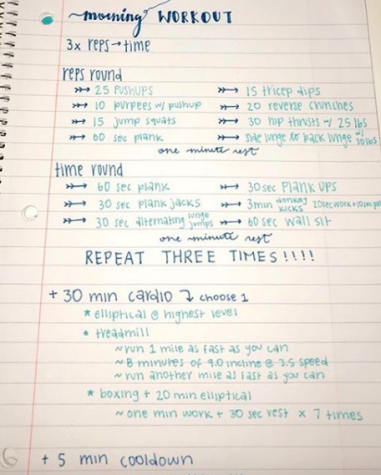 ~morning~ WORKOUT
3x reps → time
reps round
25 pushups
15 tricep dips
10 burpees w/ pushup
20 reverse crunches
15 jump squats
30 hip thrusts w/ 25 lbs
60 sec plank
side lunge to back lunge w/
one minute rest
time round
60 sec plank
30 sec plank ups
30 sec plank jacks
3min donkey kicks
30 sec alternating lunge jumps
60 sec wall sit
one minute rest
REPEAT THREE TIMES!!!!
+ 30 min cardio ↴ choose 1
* elliptical @ highest level
* treadmill
~ run 1 mile as fast as you can
~ 8 minutes of 9.0 incline @ 3.5 speed
~ run another mile as fast as you can
* boxing + 20 min elliptical
~ one min work + 30 sec rest × 7 times
+ 5 min cooldown